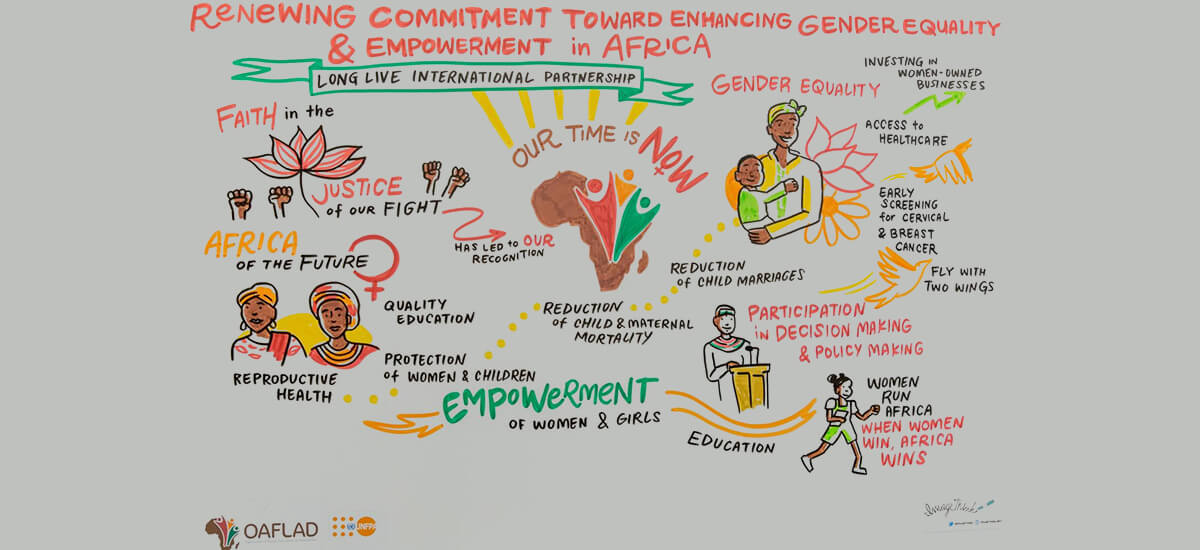 RENEWING COMMITMENT TOWARD ENHANCING GENDER EQUALITY
& EMPOWERMENT in AFRICA
LONG LIVE INTERNATIONAL PARTNERSHIP
FAITH in the
JUSTICE
of OUR FIGHT
HAS LED to OUR
RECOGNITION
OUR TIME IS NOW
AFRICA
OF THE FUTURE
REPRODUCTIVE
HEALTH
QUALITY
EDUCATION
PROTECTION
of WOMEN & CHILDREN
REDUCTION
of CHILD & MATERNAL
MORTALITY
REDUCTION
of CHILD MARRIAGES
EMPOWERMENT
OF WOMEN & GIRLS
EDUCATION
GENDER EQUALITY
INVESTING IN
WOMEN-OWNED
BUSINESSES
ACCESS to
HEALTHCARE
EARLY
SCREENING
for CERVICAL
& BREAST
CANCER
FLY WITH
TWO WINGS
PARTICIPATION
in DECISION MAKING
& POLICY MAKING
WOMEN
RUN
AFRICA
WHEN WOMEN
WIN, AFRICA
WINS
OAFLAD
UNFPA